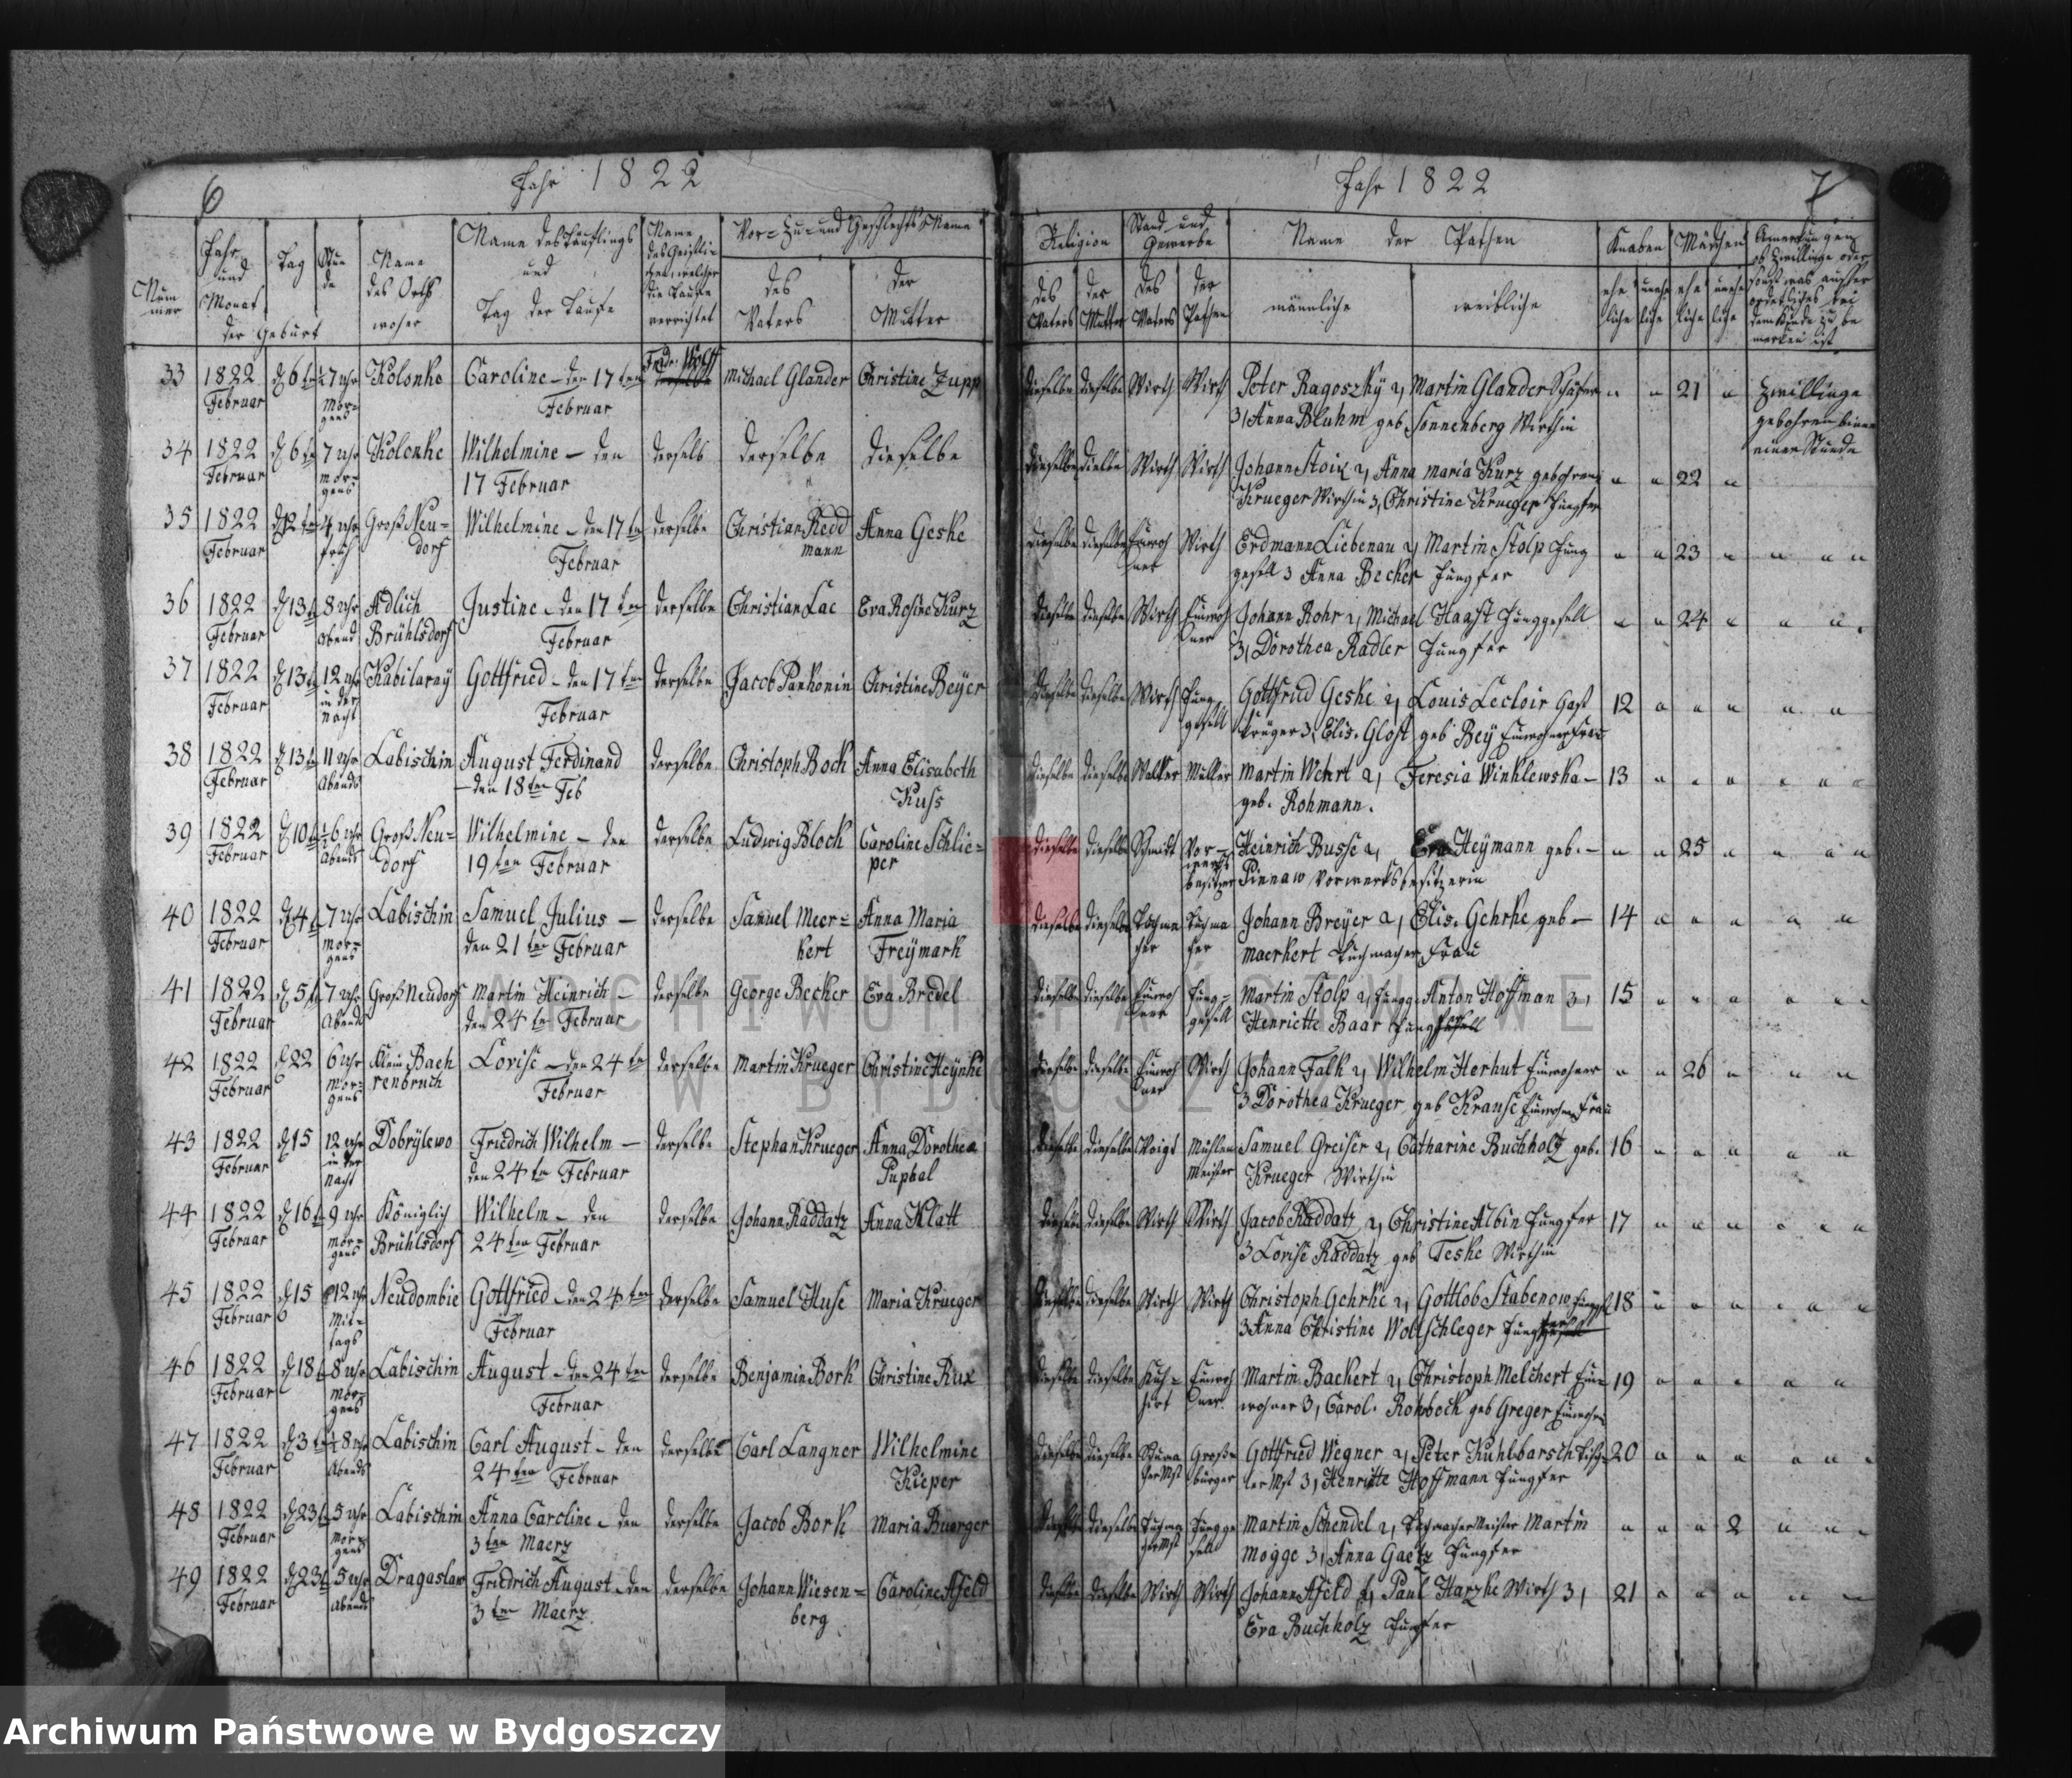 6
Jahr 1822
Jahr 1822
7
Nummer
Jahr und Monat
Tag
Stunde
der Geburt
Name des Orts woher
Name des Täuflings und Tag der Taufe
Name des Geistlichen, welcher die Taufe verrichtet
Vor- Zu- und Geschlechts Name
des Vaters
der Mutter
Religion
des Vaters
der Mutter
Stand und Gewerbe
des Vaters
der Pathen
Name der Pathen
männliche
weibliche
Knaben
eheliche
uneheliche
Mädchen
eheliche
uneheliche
33 1822 Februar d 6ten 7 uhr Morgens Kolonke Caroline – den 17ten Februar Michael Glander Christine Zupp
dieselbe dieselbe Wirth Wirth Peter Ragoszky 2, Martin Glander Schäfer 21 Zwillinge
3, Anna Bluhm geb Sonnenberg Wirthin gebohren binnen einer Stunde
34 1822 Februar d 6ten 7 uhr morgens Kolonke Wilhelmine – den 17 Februar derselb derselbe dieselbe
Wirth Wirth Johann Stoik 2, Anna Maria Kurz gebohrene 22
Krueger Wirthin 3, Christine Krueger Jungfer
35 1822 Februar d 12ten 4 uhr früh Groß Neudorf Wilhelmine – den 17ten Februar derselbe Christian Reddmann Anna Geske
dieselbe dieselbe Einwohner Wirth Erdmann Liebenau 2, Martin Stolp Jung 23
gesell 3 Anna Becker Jungfer
36 1822 Februar d 13t 8 uhr abend Adlich Brühlsdorf Justine – den 17ten Februar derselbe Christian Lac Eva Rosine Kurz
dieselbe dieselbe Wirth Einwohner Johann Rohr 2, Michael Haast Junggesell 24
3, Dorothea Radler Jungfer
37 1822 Februar d 13t 12 uhr in der Nacht Kabilaray Gottfried – den 17ten Februar derselbe Jacob Pankonin Christine Beyer
dieselbe dieselbe Wirth Junggesell Gottfried Geske 2, Louis Lecloir Gast 12
krüger 3, Elis. Glost geb Bey Einwohner Frau
38 1822 Februar d 13t 11 uhr Abends Labischin August Ferdinand – den 18ten Feb derselbe Christoph Bock Anna Elisabeth Kuss
dieselbe dieselbe Walker Müller Martin Wehrt 2, Feresia Winklewska – 13
geb. Rohmann.
39 1822 Februar d 10t 6 uhr Abends Groß Neudorf Wilhelmine – den 19ten Februar derselbe Ludwig Block Caroline Schlieper
dieselbe dieselbe Schmidt Vorwerksbesitzer Heinrich Busse 2, Eva Heymann geb. – 25
Pinnaw Vorwerksbesitzerin
40 1822 Februar d 4t 7 uhr morgens Labischin Samuel Julius – den 21ten Februar derselbe Samuel Meerkert Anna Maria Freymark
dieselbe dieselbe Tuchmacher Johann Breyer 2, Elis. Gehrke geb – 14
maerkert Tuchmacher Frau
41 1822 Februar d 5t 7 uhr Abend Groß Neudorf Martin Heinrich – den 24ten Februar derselbe George Becker Eva Bredel
dieselbe dieselbe Einwohner Junggesell Martin Stolp 2, Jungg. Anton Hoffman 3, 15
Henriette Baar Jungfer
42 1822 Februar d 22 6 uhr Morgens Klein Bachrenbruch Lovise – den 24ten Februar derselbe Martin Krueger Christine Heynke
dieselbe dieselbe Einwohner Wirth Johann Falk 2, Wilhelm Herhut Einwohner 26
3 Dorothea Krueger geb Krause Einwohner Frau
43 1822 Februar d 15 12 uhr in der Nacht Dobrylewo Friedrich Wilhelm – den 24ten Februar derselbe Stephan Krueger Anna Dorothea Puphal
dieselbe dieselbe Voigt Mühlen Meister Samuel Greiser 2, Catharine Buchholtz geb. 16
Krueger Wirthin
44 1822 Februar d 16t 9 uhr morgens Königlich Brühlsdorf Wilhelm – den 24ten Februar derselbe Johann Raddatz Anna Klatt
dieselbe dieselbe Wirth Wirth Jacob Raddatz 2, Christine Albin Jungfer 17
3 Lovise Raddatz geb Teske Wirthin
45 1822 Februar d 15 12 uhr Mittags Neudombie Gottfried – den 24ten Februar derselbe Samuel Huse Maria Krueger
dieselbe dieselbe Wirth Wirth Christoph Gehrke 2, Gottlob Stabenow 18
3 Anna Christine Wollschleger Jungfer
46 1822 Februar d 18t 8 uhr Morgens Labischin August – den 24ten Februar derselbe Benjamin Bork Christine Rux
dieselbe dieselbe Kuhhirt Einwohner Martin Backert 2, Christoph Melchert Ein 19
wohner 3, Carol. Rohrbeck geb Greger
47 1822 Februar d 3t 8 uhr Abends Labischin Carl August – den 24ten Februar derselbe Carl Langner Wilhelmine Kieper
dieselbe dieselbe Großbürger Gottfried Wegner 2, Peter Kuhlbarsch Tisch 20
ler Mst 3, Henriette Hoffmann Jungfer
48 1822 Februar d 23t 5 uhr morgens Labischin Anna Caroline – den 3ten Maerz derselbe Jacob Bork Maria Buerger
dieselbe dieselbe Junggesell Martin Schendel 2, Tuchmacher Meister Martin 2
Mogge 3, Anna Gaetz Jungfer
49 1822 Februar d 23t 5 uhr Abends Dragaslaw Friedrich August – den 3ten Maerz derselbe Johann Wiesenberg Caroline Afeld
dieselbe dieselbe Wirth Wirth Johann Afeld 2, Paul Harzke Wirth 3, 21
Eva Buchholz Jungfer
ARCHIWUM PAŃSTWOWE
W BYDGOSZCZY
Archiwum Państwowe w Bydgoszczy